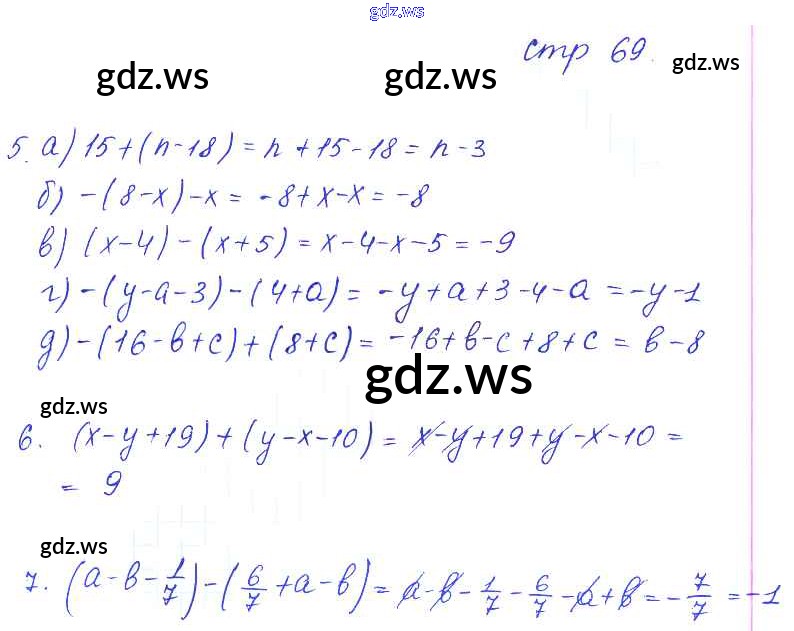 gdz.ws
стр 69.
gdz.ws gdz.ws gdz.ws
5. а) 15+(n-18) = n+15-18 = n-3
б) -(8-x)-x = -8+x-x = -8
в) (x-4)-(x+5) = x-4-x-5 = -9
г) -(y-a-3)-(4+a) = -y+a+3-4-a = -y-1
д) -(16-в+c)+(8+c) = -16+в-c+8+c = в-8
gdz.ws
gdz.ws
6. (x-y+19)+(y-x-10) = x-y+19+y-x-10 =
= 9
gdz.ws
7. (a-в-1/7)-(6/7+a-в) = a-в-1/7-6/7-a+в = -7/7 = -1